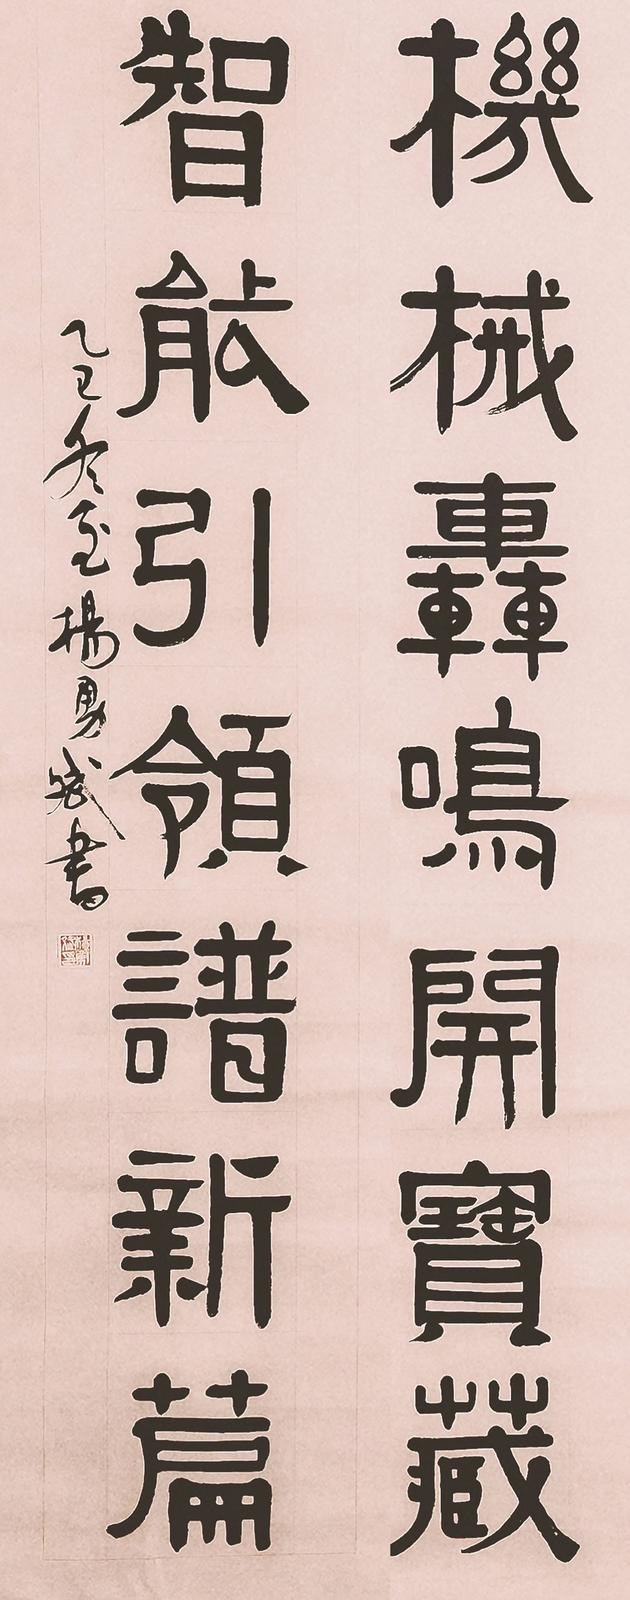 機械轟鳴開寶藏
智能引領譜新篇
乙巳冬至楊勇斌書